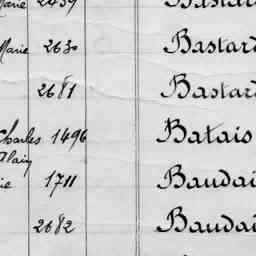 Marie 2459 Bastard
Marie 2630 Bastard
2681 Bastard
Charles 1496 Batais
Alain
ie 1711 Baudai
2682 Baudai